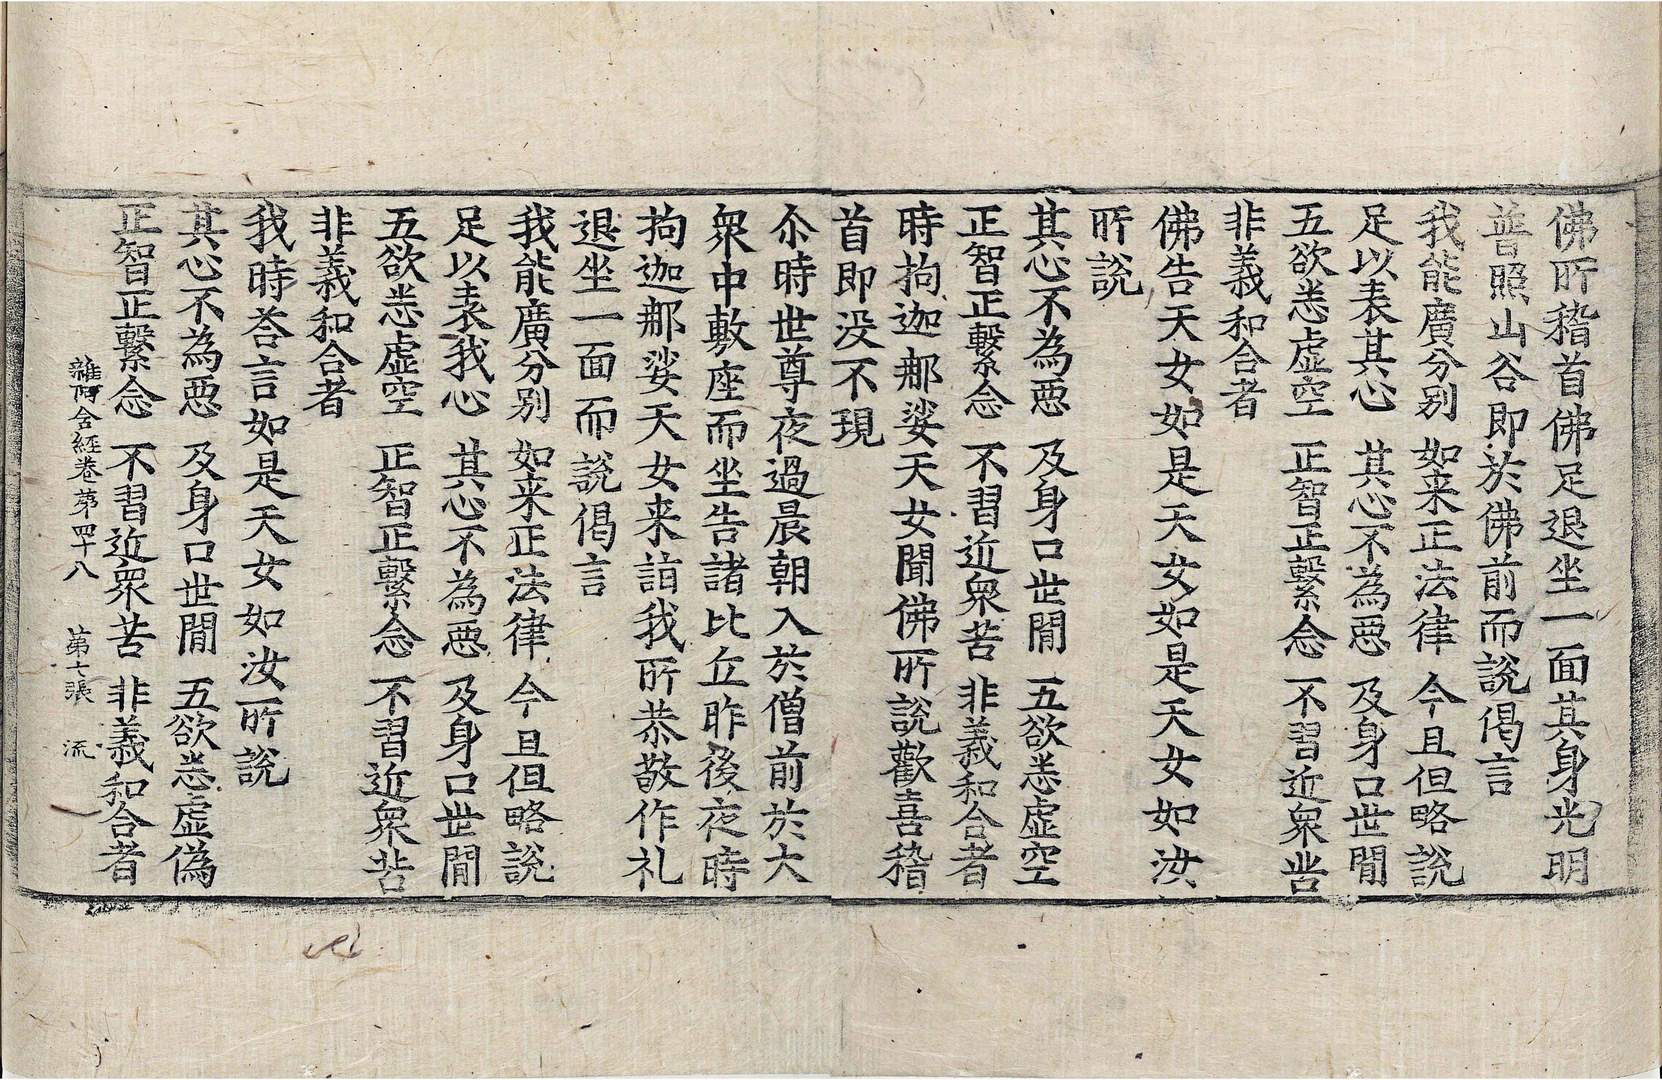 佛所稽首佛足退坐一面其身光明
普照山谷即於佛前而說偈言
我能廣分別　如来正法律　今且但略說
足以表其心　其心不為惡　及身口世間
五欲悉虛空　正智正繫念　不習近衆苦
非義和合者
佛告天女如是天女如是天女如汝
所說
其心不為惡　及身口世間　五欲悉虛空
正智正繫念　不習近衆苦　非義和合者
時拘迦那娑天女聞佛所說歡喜稽
首即没不現
尒時世尊夜過晨朝入於僧前於大
衆中敷座而坐告諸比丘昨後夜時
拘迦那娑天女来詣我所恭敬作礼
退坐一面而說偈言
我能廣分別　如来正法律　今且但略說
足以表我心　其心不為惡　及身口世間
五欲悉虛空　正智正繫念　不習近衆苦
非義和合者
我時荅言如是天女如汝所說
其心不為惡　及身口世間　五欲悉虛偽
正智正繫念　不習近衆苦　非義和合者
雜阿含經卷第四十八　第七張　流